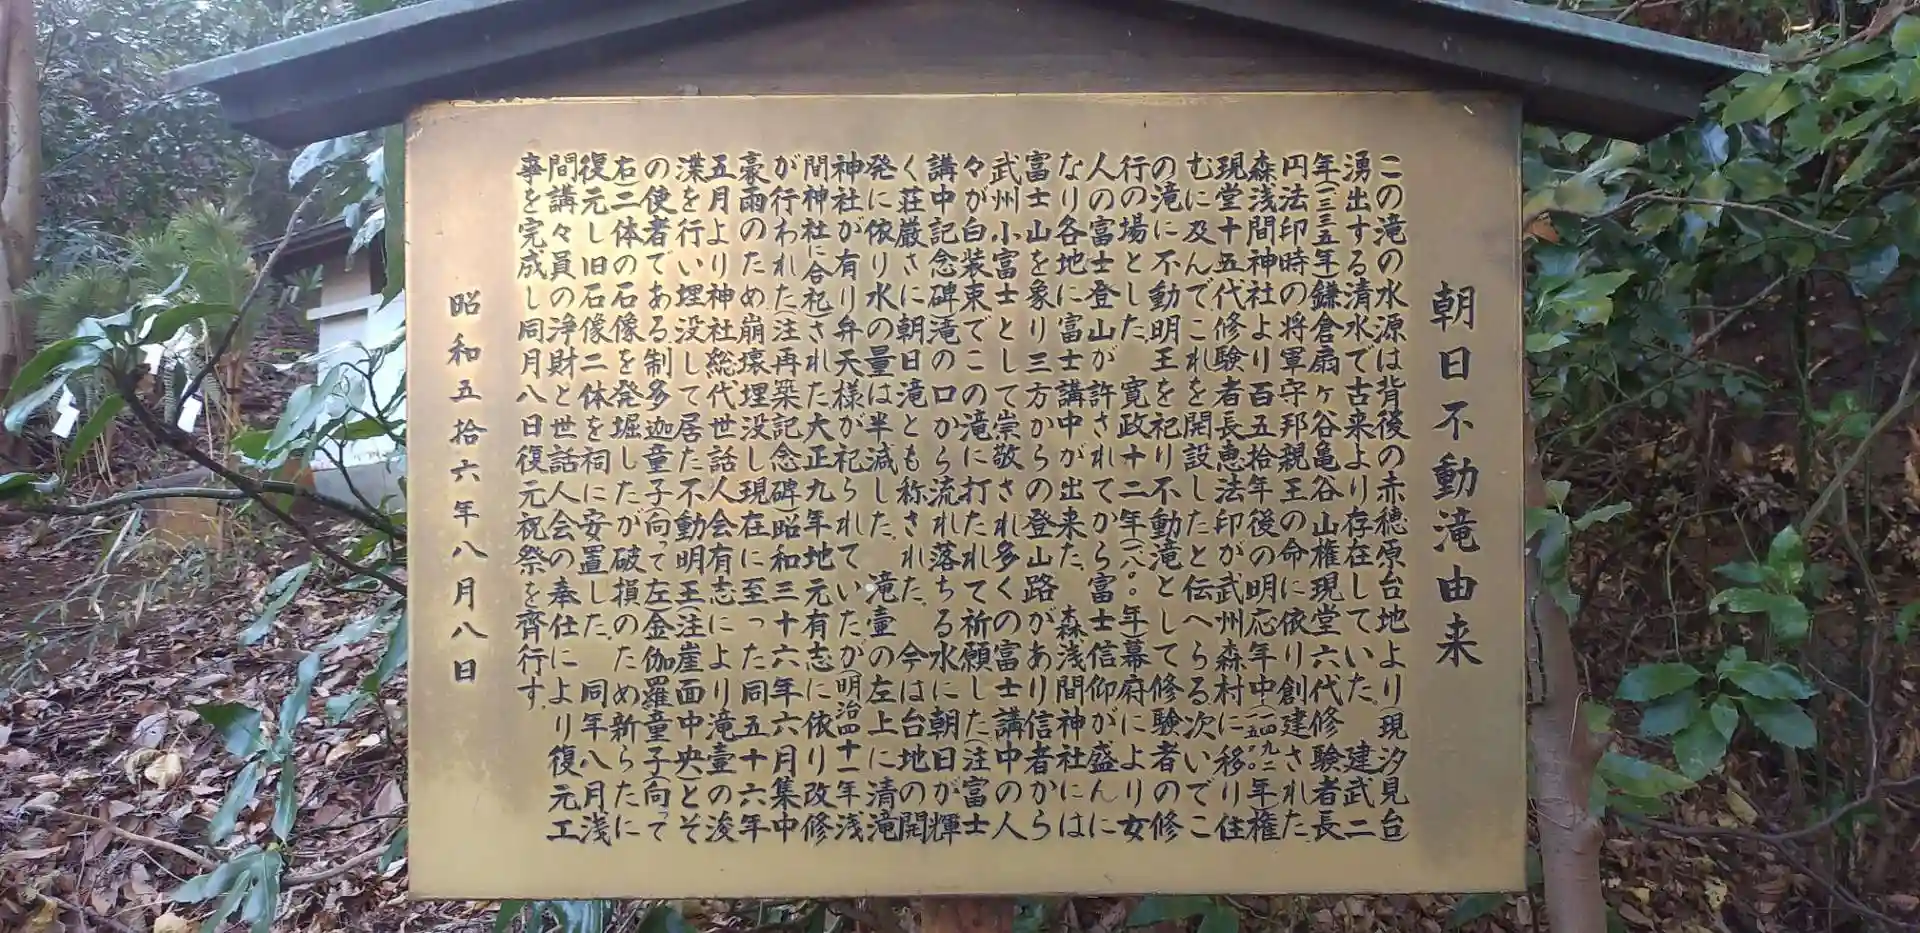 朝日不動滝由来
この滝の水源は背後の赤穂原台地より(現汐見台)
湧出する清水で古来より存在していた。建武二
年(一三三五年)鎌倉扇ヶ谷亀谷山権現堂六代修験者長
円法印時の将軍守邦親王の命に依り創建された
森浅間神社より百五拾年後の明応年中(一四九二一五〇〇)年権
現堂十五代修験者長恵法印が武州森村に移り住
むに及んでこれを開設したと伝へらる次いでこ
の滝に不動明王を祀り不動滝として修験者の修
行の場とした。寛政十二年(一八〇〇年)幕府により女
人の富士登山が許されてから富士信仰が盛んに
なり各地に富士講中が出来た。森浅間神社には
富士山を象り三方からの登山路があり信者から
武州小富士として崇敬され多くの富士講中の人
々が白装束でこの滝に打たれて祈願した注富士
講中記念碑滝の口から流れ落ちる水に朝日が輝
く荘厳さに朝日滝とも称された。今は台地の開
発に依り水の量は半減した。滝壷の左上に清滝
神社が有り弁天様が祀られていたが(明治四十一年浅
間神社に合祀された大正九年地元有志に依り改修
が行われた(注再築記念碑)昭和三十六年六月集中
豪雨のため崩壊埋没し現在に至った同五十六年
五月より神社総代世話人会有志により滝壷の浚
渫を行い埋没して居た不動明王(注崖面中央とそ
の使者である制多迦童子(向って左)金伽羅童子(向って
右)二体の石像を発堀したが破損のため新らたに
復元し旧石像二体を祠に安置した。同年八月浅
間講々員の浄財と世話人会の奉仕により復元工
事を完成し同月八日復元祝祭を齊行す。
昭和五拾六年八月八日